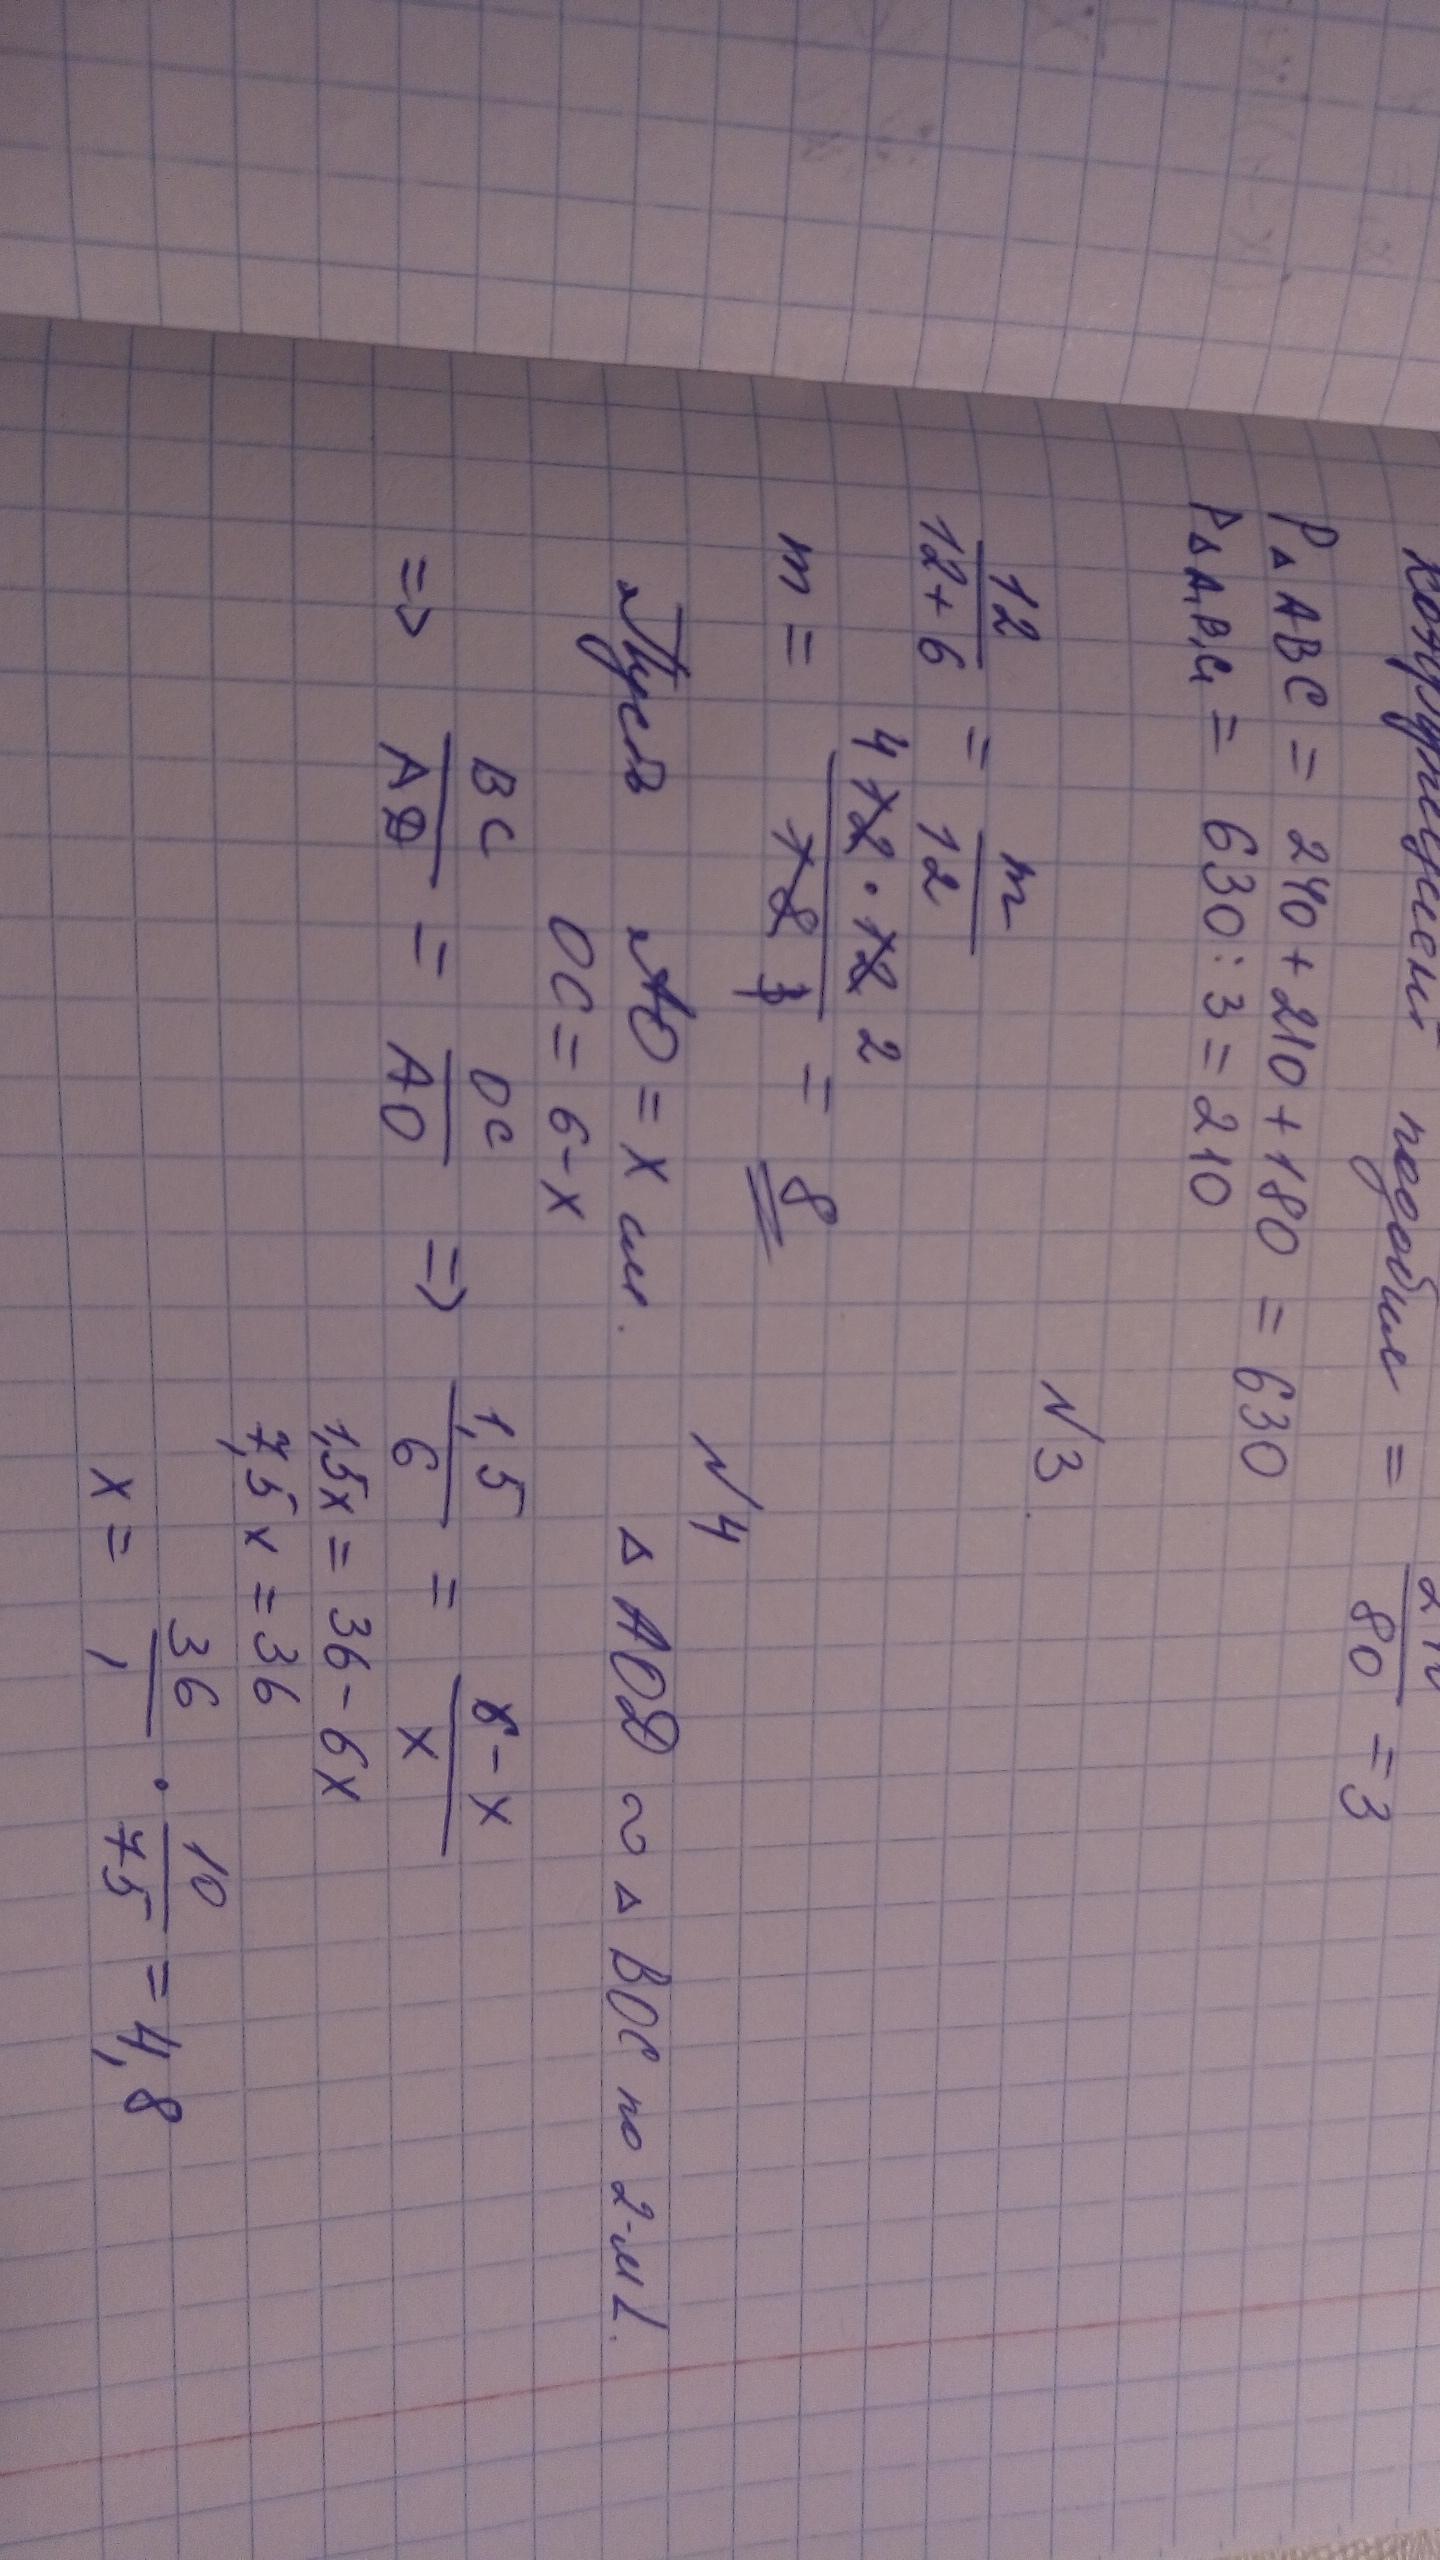 подобие = 240/80 = 3
P△ABC = 240 + 210 + 180 = 630
P△A₁B₁C₁ = 630 : 3 = 210
№3
12/(12+6) = m/12
m = (4 12 · 12 2)/(18 3) = 8
№4
Пусть AO = x см. △AOD ~ △BOC по 2-м ∠.
OC = 6-x
=> BC/AD = OC/AO => 1,5/6 = (6-x)/x
1,5x = 36 - 6x
7,5x = 36
x = 36/1 · 10/75 = 4,8